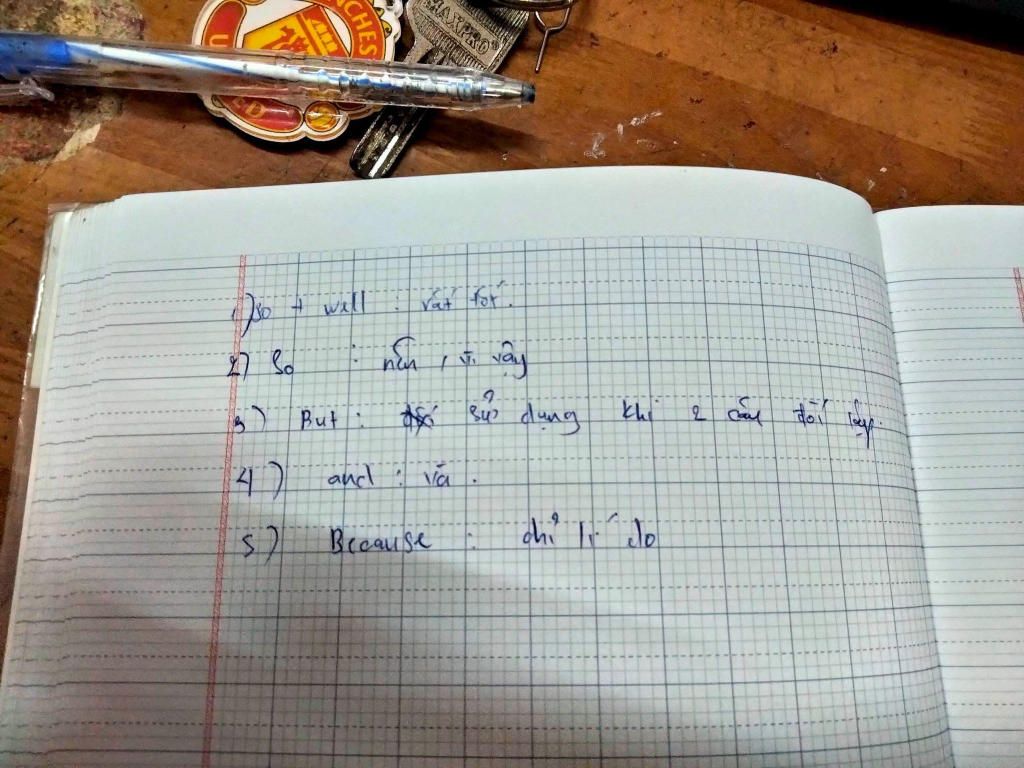 NCHES
U
ED
MAXPRO
1) so + well : rất tốt.
2) So : nên, vì vậy
3) But : sử dụng khi 2 câu đối lập.
4) and : và.
5) Because : chỉ lí do